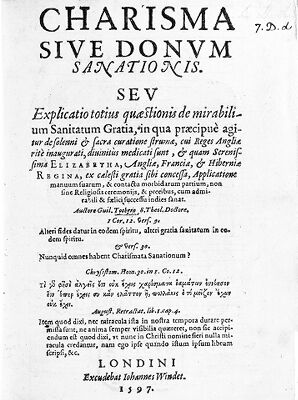 CHARISMA
SIVE DONVM
SANATIONIS.
SEV
Explicatio totius quæstionis de mirabili-
um Sanitatum Gratia, in qua præcipuè agi-
tur de solenni & sacra curatione strumæ, cui Reges Angliæ
ritè inaugurati, diuinitùs medicati sunt, & quam Serenis-
sima ELIZABETHA, Angliæ, Franciæ, & Hiberniæ
REGINA, ex cælesti gratia sibi concessa, Applicatione
manuum suarum, & contactu morbidarum partium, non
sine Religiosis ceremonijs, & precibus, cum admi-
rabili & fœlici successu indies sanat.
Auctore Guil. Tookero, S. Theol. Doctore,
1 Cor. 12. Vers. 9.
Alteri fides datur in eodem spiritu, alteri gratia sanitatum in eo-
dem spiritu.
& Vers. 30.
Nunquid omnes habent Charismata Sanationum?
Chrysostom. Hom. 32. in 1. Co. 12.
August. Retractat. lib. 1. cap. 4.
Item quod dixi, nec miracula ista in nostra tempora durare per-
missa sunt, ne anima semper visibilia quæreret, non sic accipi-
endum est quod dixi, vt nunc in Christi nomine fieri nulla mi-
racula credantur, nam ego ipse quando illum ipsum librum
scripsi, &c.
LONDINI
Excudebat Iohannes Windet.
1597.